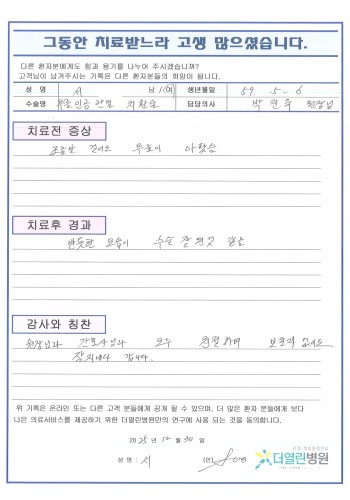 그동안 치료받느라 고생 많으셨습니다.
다른 환자분에게도 힘과 용기를 나누어 주시겠습니까?
고객님이 남겨주시는 기록은 다른 환자분들의 희망이 됩니다.
성 명 서 남 / 여 생년월일 59. 5-6
수술명 인공관절 치환술 담당의사 박 원장님
치료전 증상
조금만 걸어도 무릎이 아팠음
치료후 경과
반듯한 모습이 수술 잘 된것 같음
감사와 칭찬
원장님과 간호사님과 모두 친절하며 보호자 없어도
잘지내다 갑니다.
위 기록은 온라인 또는 다른 고객 분들에게 공개 될 수 있으며, 더 많은 환자 분들에게 보다
나은 의료서비스를 제공하기 위한 더열린병원만의 연구에 사용 되는 것을 동의합니다.
2025년 12월 30일
성 명 : 서 (인)
더열린병원